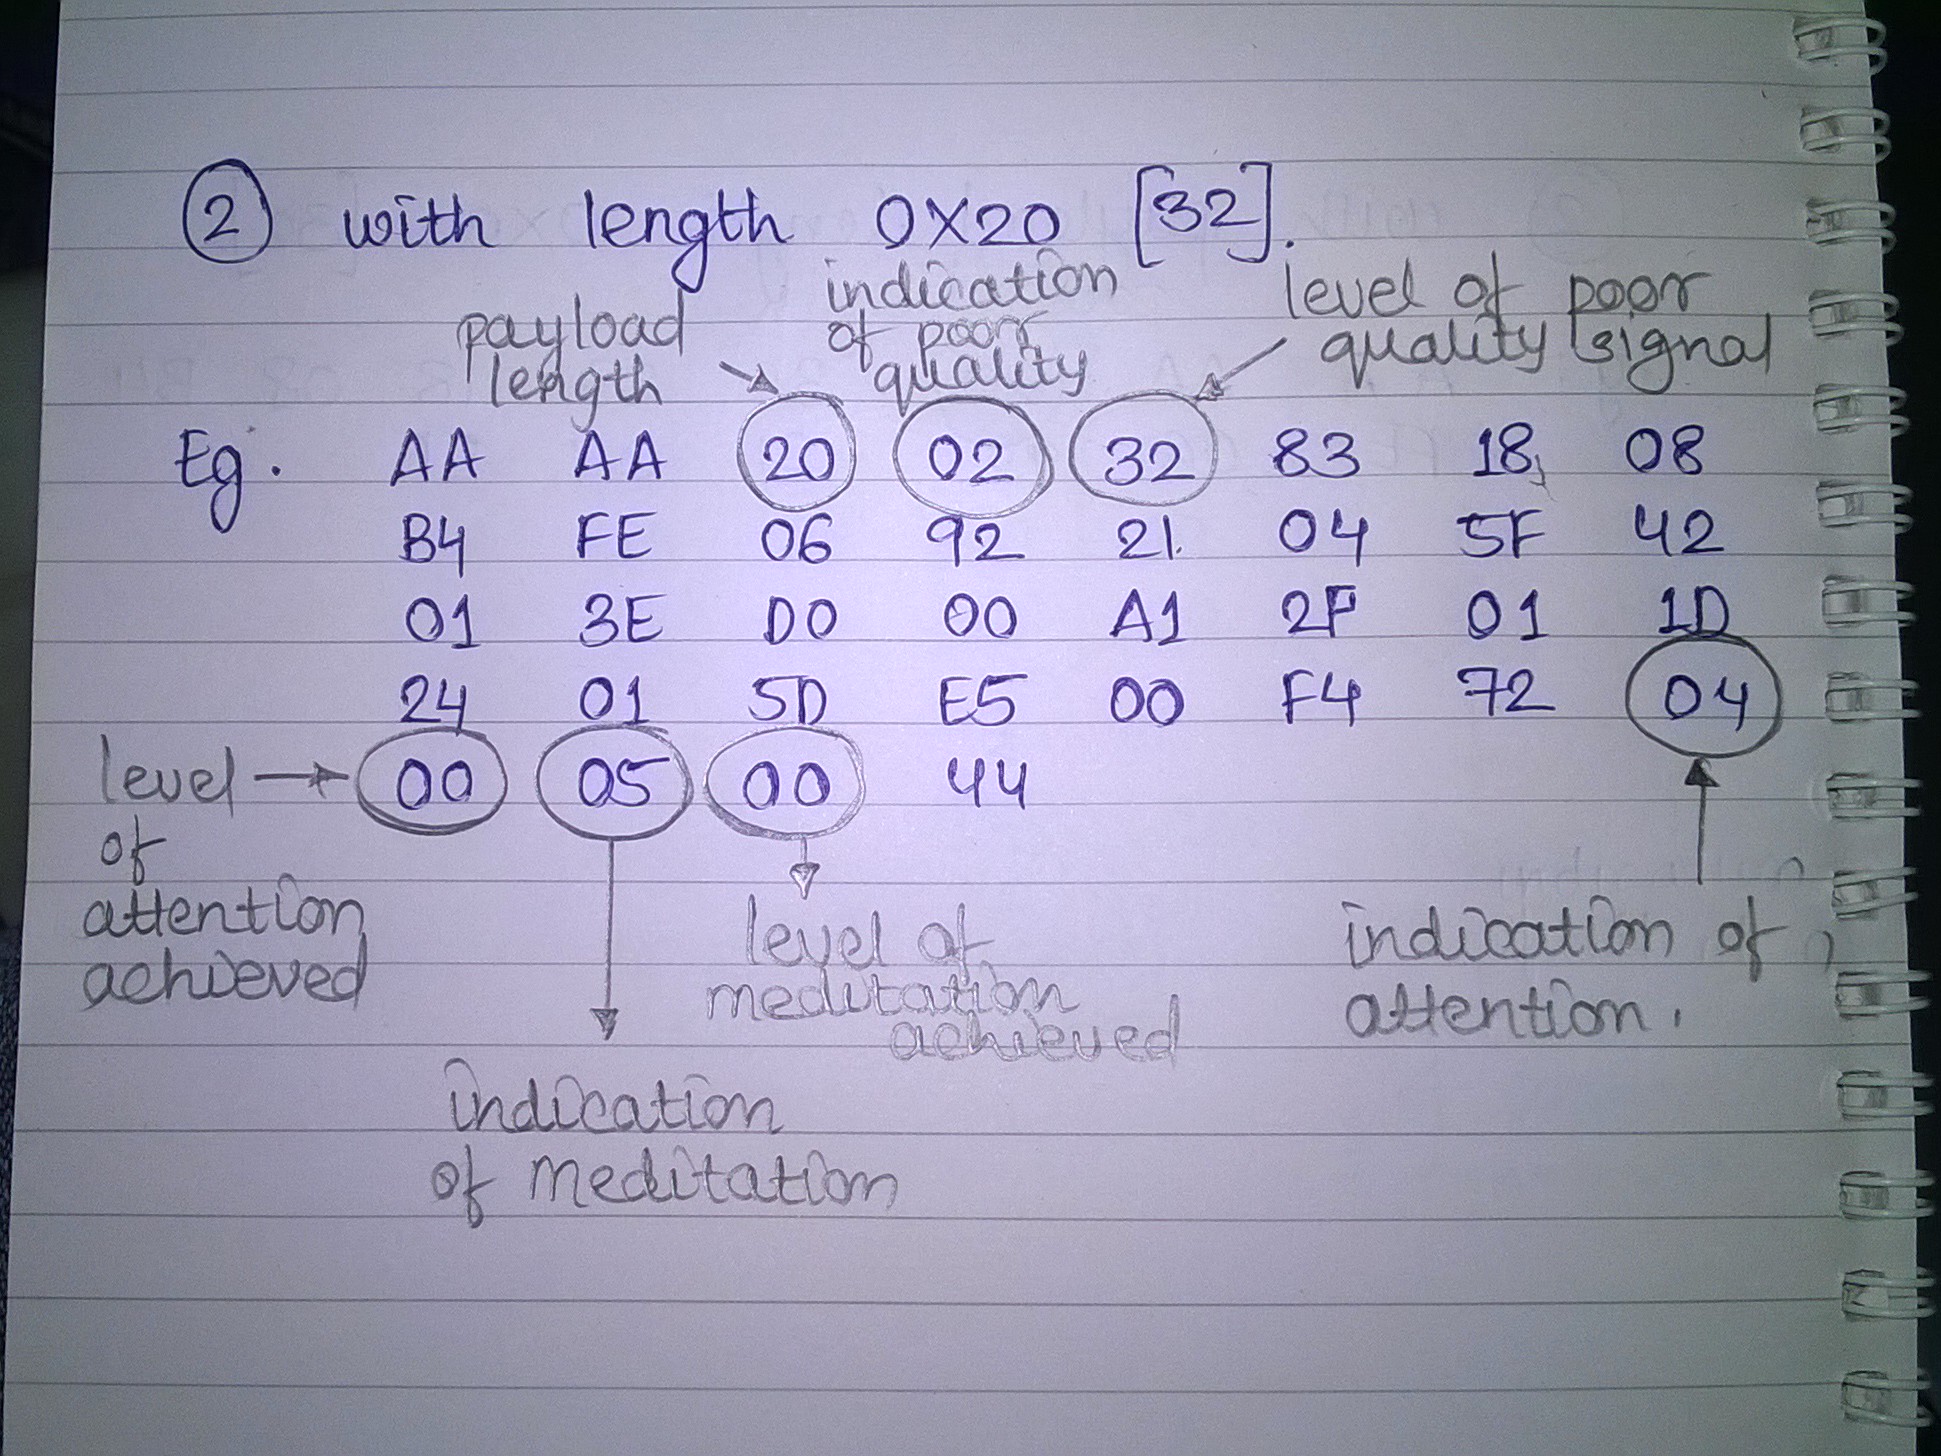 ② with length 0X20 [32].
payload length
indication of poor quality
level of poor quality signal
Eg. AA AA 20 02 32 83 18 08
B4 FE 06 92 21 04 5F 42
01 3E D0 00 A1 2F 01 1D
24 01 5D E5 00 F4 72 04
00 05 00 44
level of attention achieved
level of meditation achieved
indication of attention.
indication of meditation